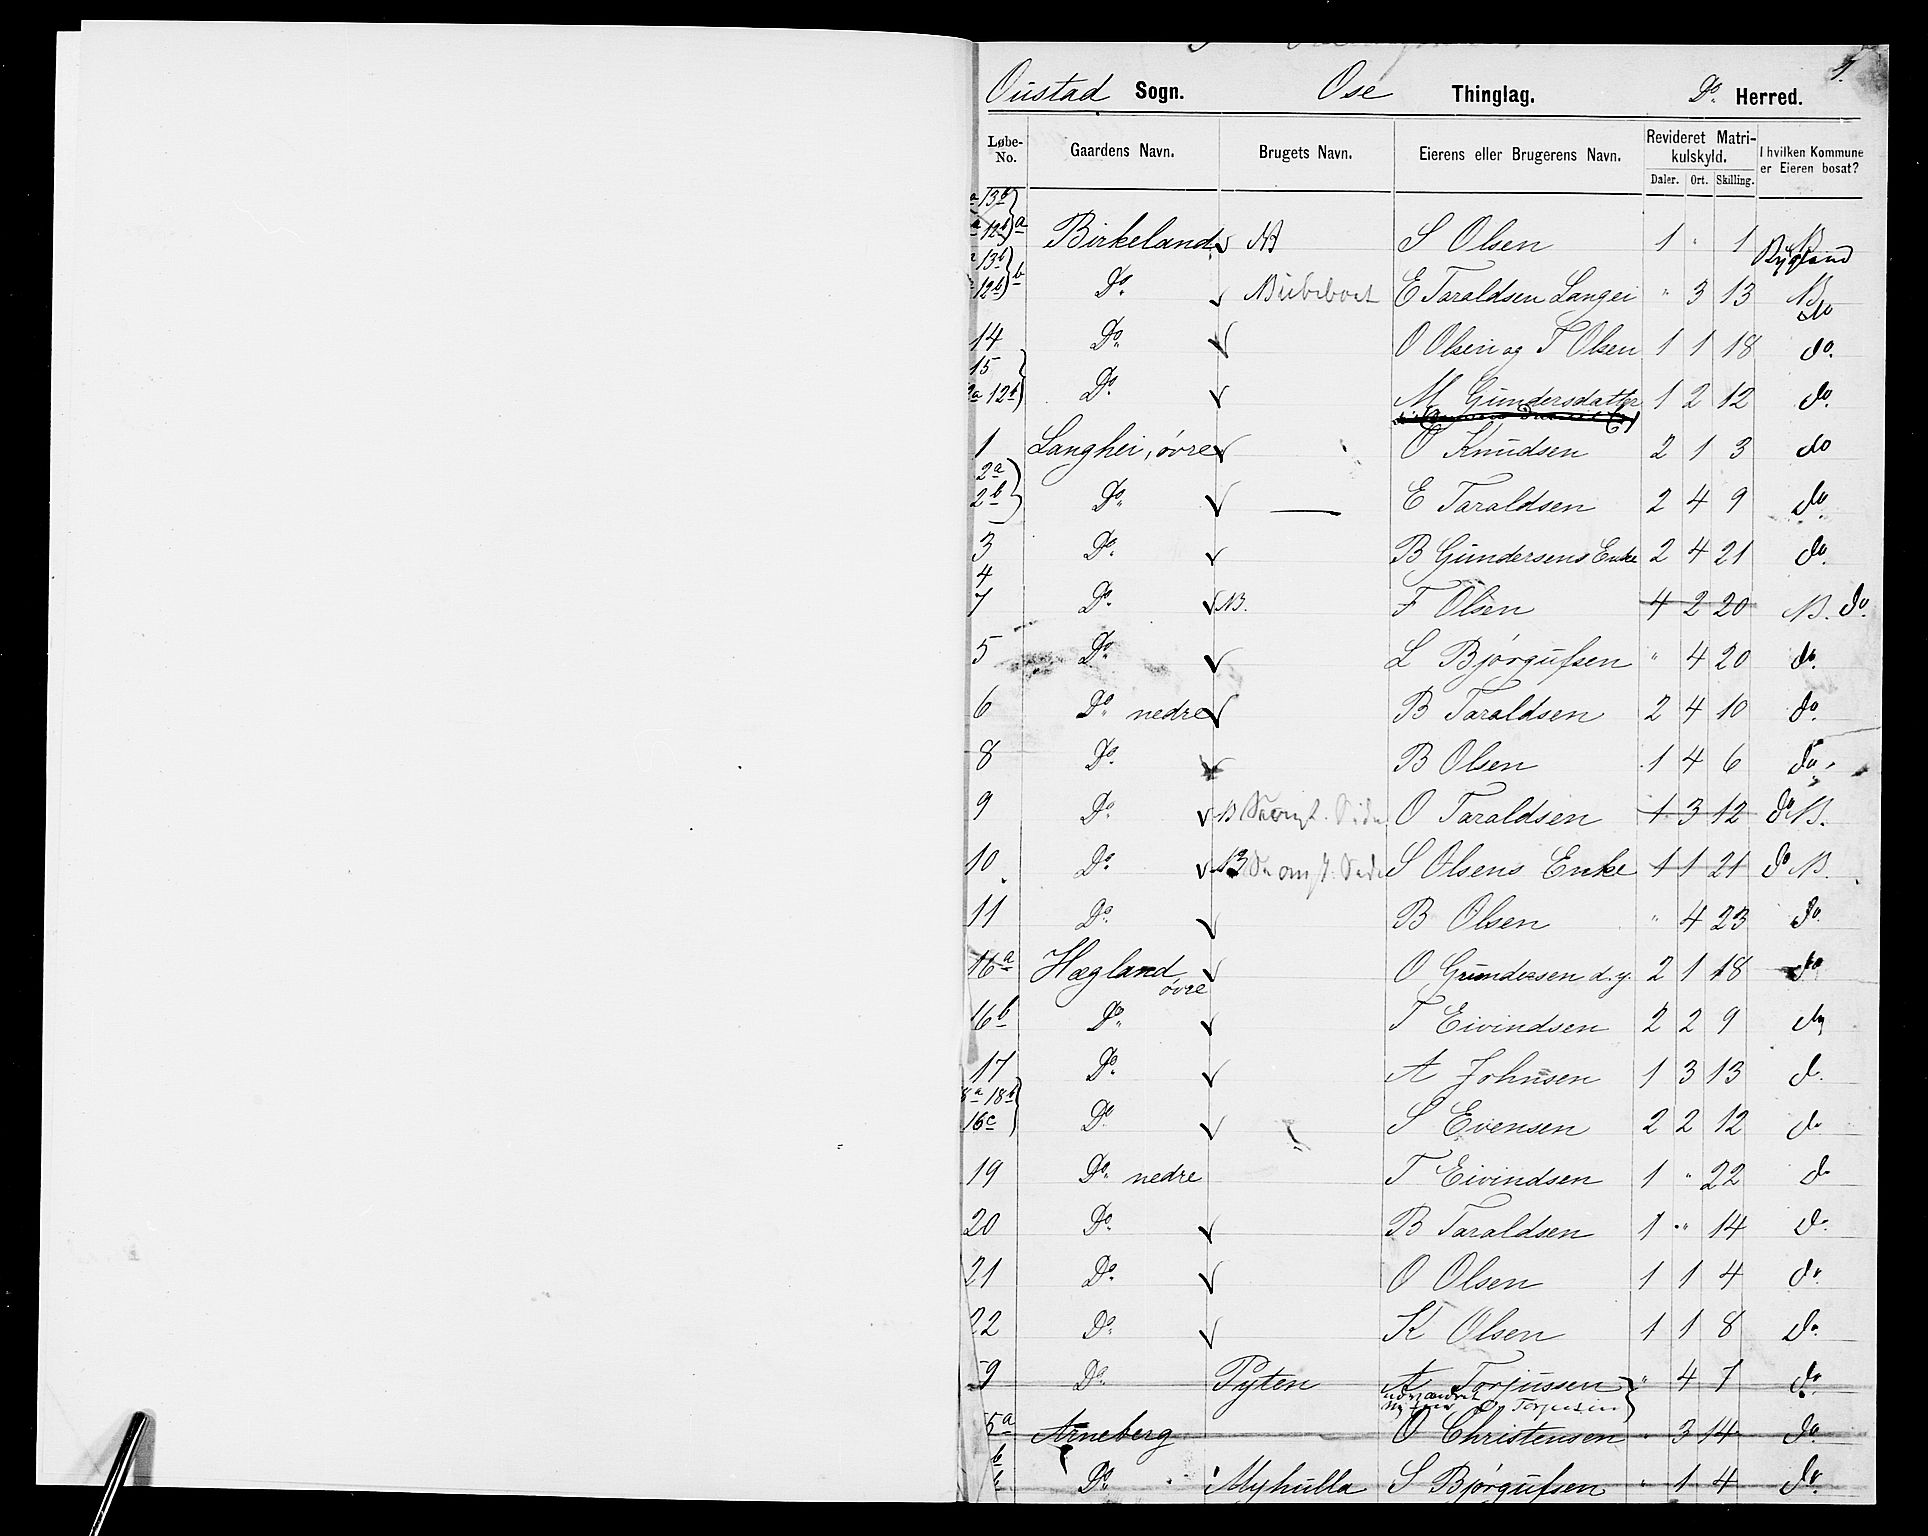 1.
Oustad Sogn. Ose Thinglag. Do. Herred.
Løbe-No. Gaardens Navn. Brugets Navn. Eierens eller Brugerens Navn. Revideret Matrikulskyld. Daler. Ort. Skilling. I hvilken Kommune er Eieren bosat?
13b
12b a Birkeland NB S Olsen 1 " 1 NB Bygland
13b
12b b Do. E Taraldsen Langei " 3 13 NB do
14 Do. O Olsen og T Olsen 1 1 18 do.
15
12b Do. M Gundersdatter 1 2 12 do.
1 Langhei, övre O Knudsen 2 1 3 do
2a
2b Do. — E Taraldsen 2 4 9 do.
3 Do. B Gundersens Enke 2 4 21 do.
4
7 Do. NB. F Olsen 4 2 20 NB. do.
5 Do. L Bjørgufsen " 4 20 do.
6 Do. nedre B Taraldsen 2 4 10 do.
8 Do. B Olsen 1 4 6 do.
9 Do. NB O Taraldsen 1 3 12 do NB.
10 Do. NB S Olsens Enke 1 1 21 do NB.
11 Do. B Olsen " 4 23 do
16a Hægland övre O Gundersen d.y. 2 1 18 do
16b Do. T Eivindsen 2 2 9 do
17 Do. A Johnsen 1 3 13 do.
8a 18b
16c Do. S Evensen 2 2 12 do
19 Do. nedre T Eivindsen 1 " 22 do
20 Do. B Taraldsen 1 " 14 do.
21 Do. O Olsen 1 1 4 do.
22 Do. K Olsen 1 1 8 do.
59 Do. Pyten A Torjussen " 4 7 do.
O Torjusen
5a Arneberg O Christensen " 3 14 do.
b Do. Myhulla S Bjørgufsen " 1 4 do.